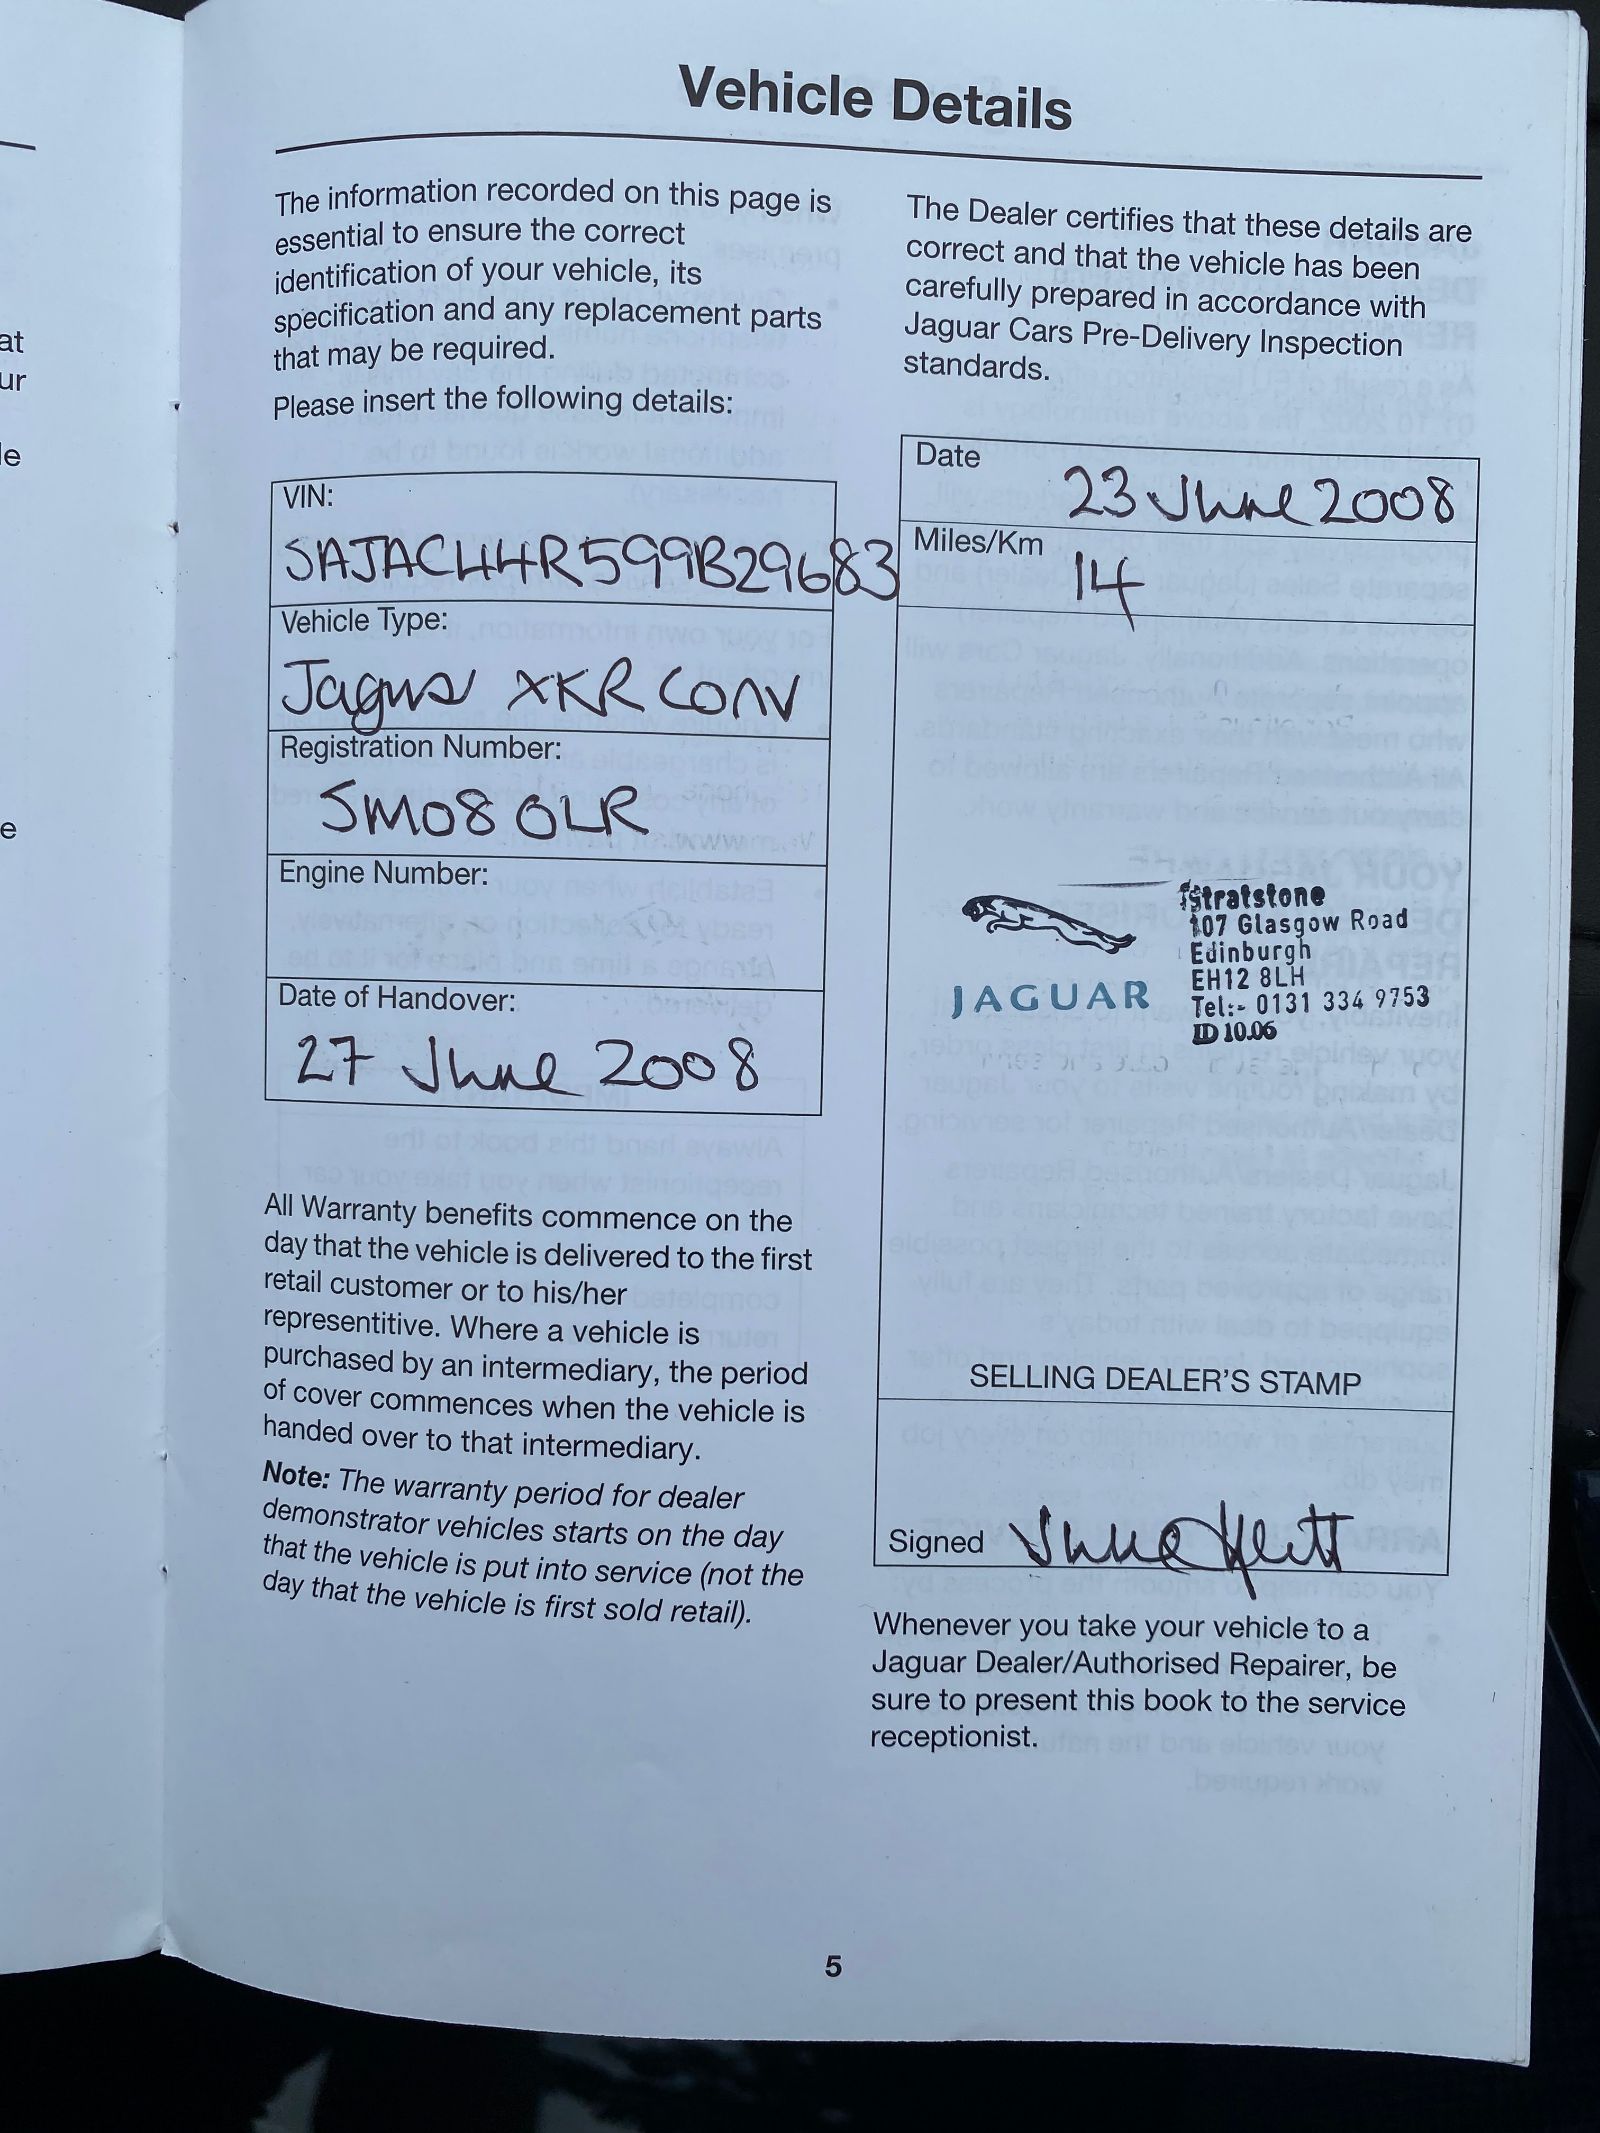 at
ur
le
e
Vehicle Details
The information recorded on this page is
essential to ensure the correct
identification of your vehicle, its
specification and any replacement parts
that may be required.
Please insert the following details:
VIN:
SAJAC44R599B29683
Vehicle Type:
Jaguar XKR CONV
Registration Number:
SM08 OLR
Engine Number:
Date of Handover:
27 June 2008
All Warranty benefits commence on the
day that the vehicle is delivered to the first
retail customer or to his/her
representitive. Where a vehicle is
purchased by an intermediary, the period
of cover commences when the vehicle is
handed over to that intermediary.
Note: The warranty period for dealer
demonstrator vehicles starts on the day
that the vehicle is put into service (not the
day that the vehicle is first sold retail).
The Dealer certifies that these details are
correct and that the vehicle has been
carefully prepared in accordance with
Jaguar Cars Pre-Delivery Inspection
standards.
Date
23 June 2008
Miles/Km
14
JAGUAR
Stratstone
107 Glasgow Road
Edinburgh
EH12 8LH
Tel:- 0131 334 9753
ID 10.06
SELLING DEALER'S STAMP
Signed
Whenever you take your vehicle to a
Jaguar Dealer/Authorised Repairer, be
sure to present this book to the service
receptionist.
5